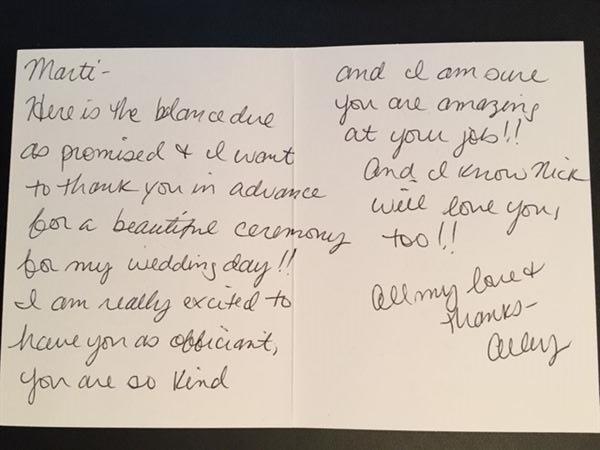 Marti-
Here is the balance due
as promised & I want
to thank you in advance
for a beautiful ceremony
for my wedding day!!
I am really excited to
have you as officiant,
you are so kind
and I am sure
you are amazing
at your job!!
And I know Nick
will love you,
too!!
All my love &
thanks-